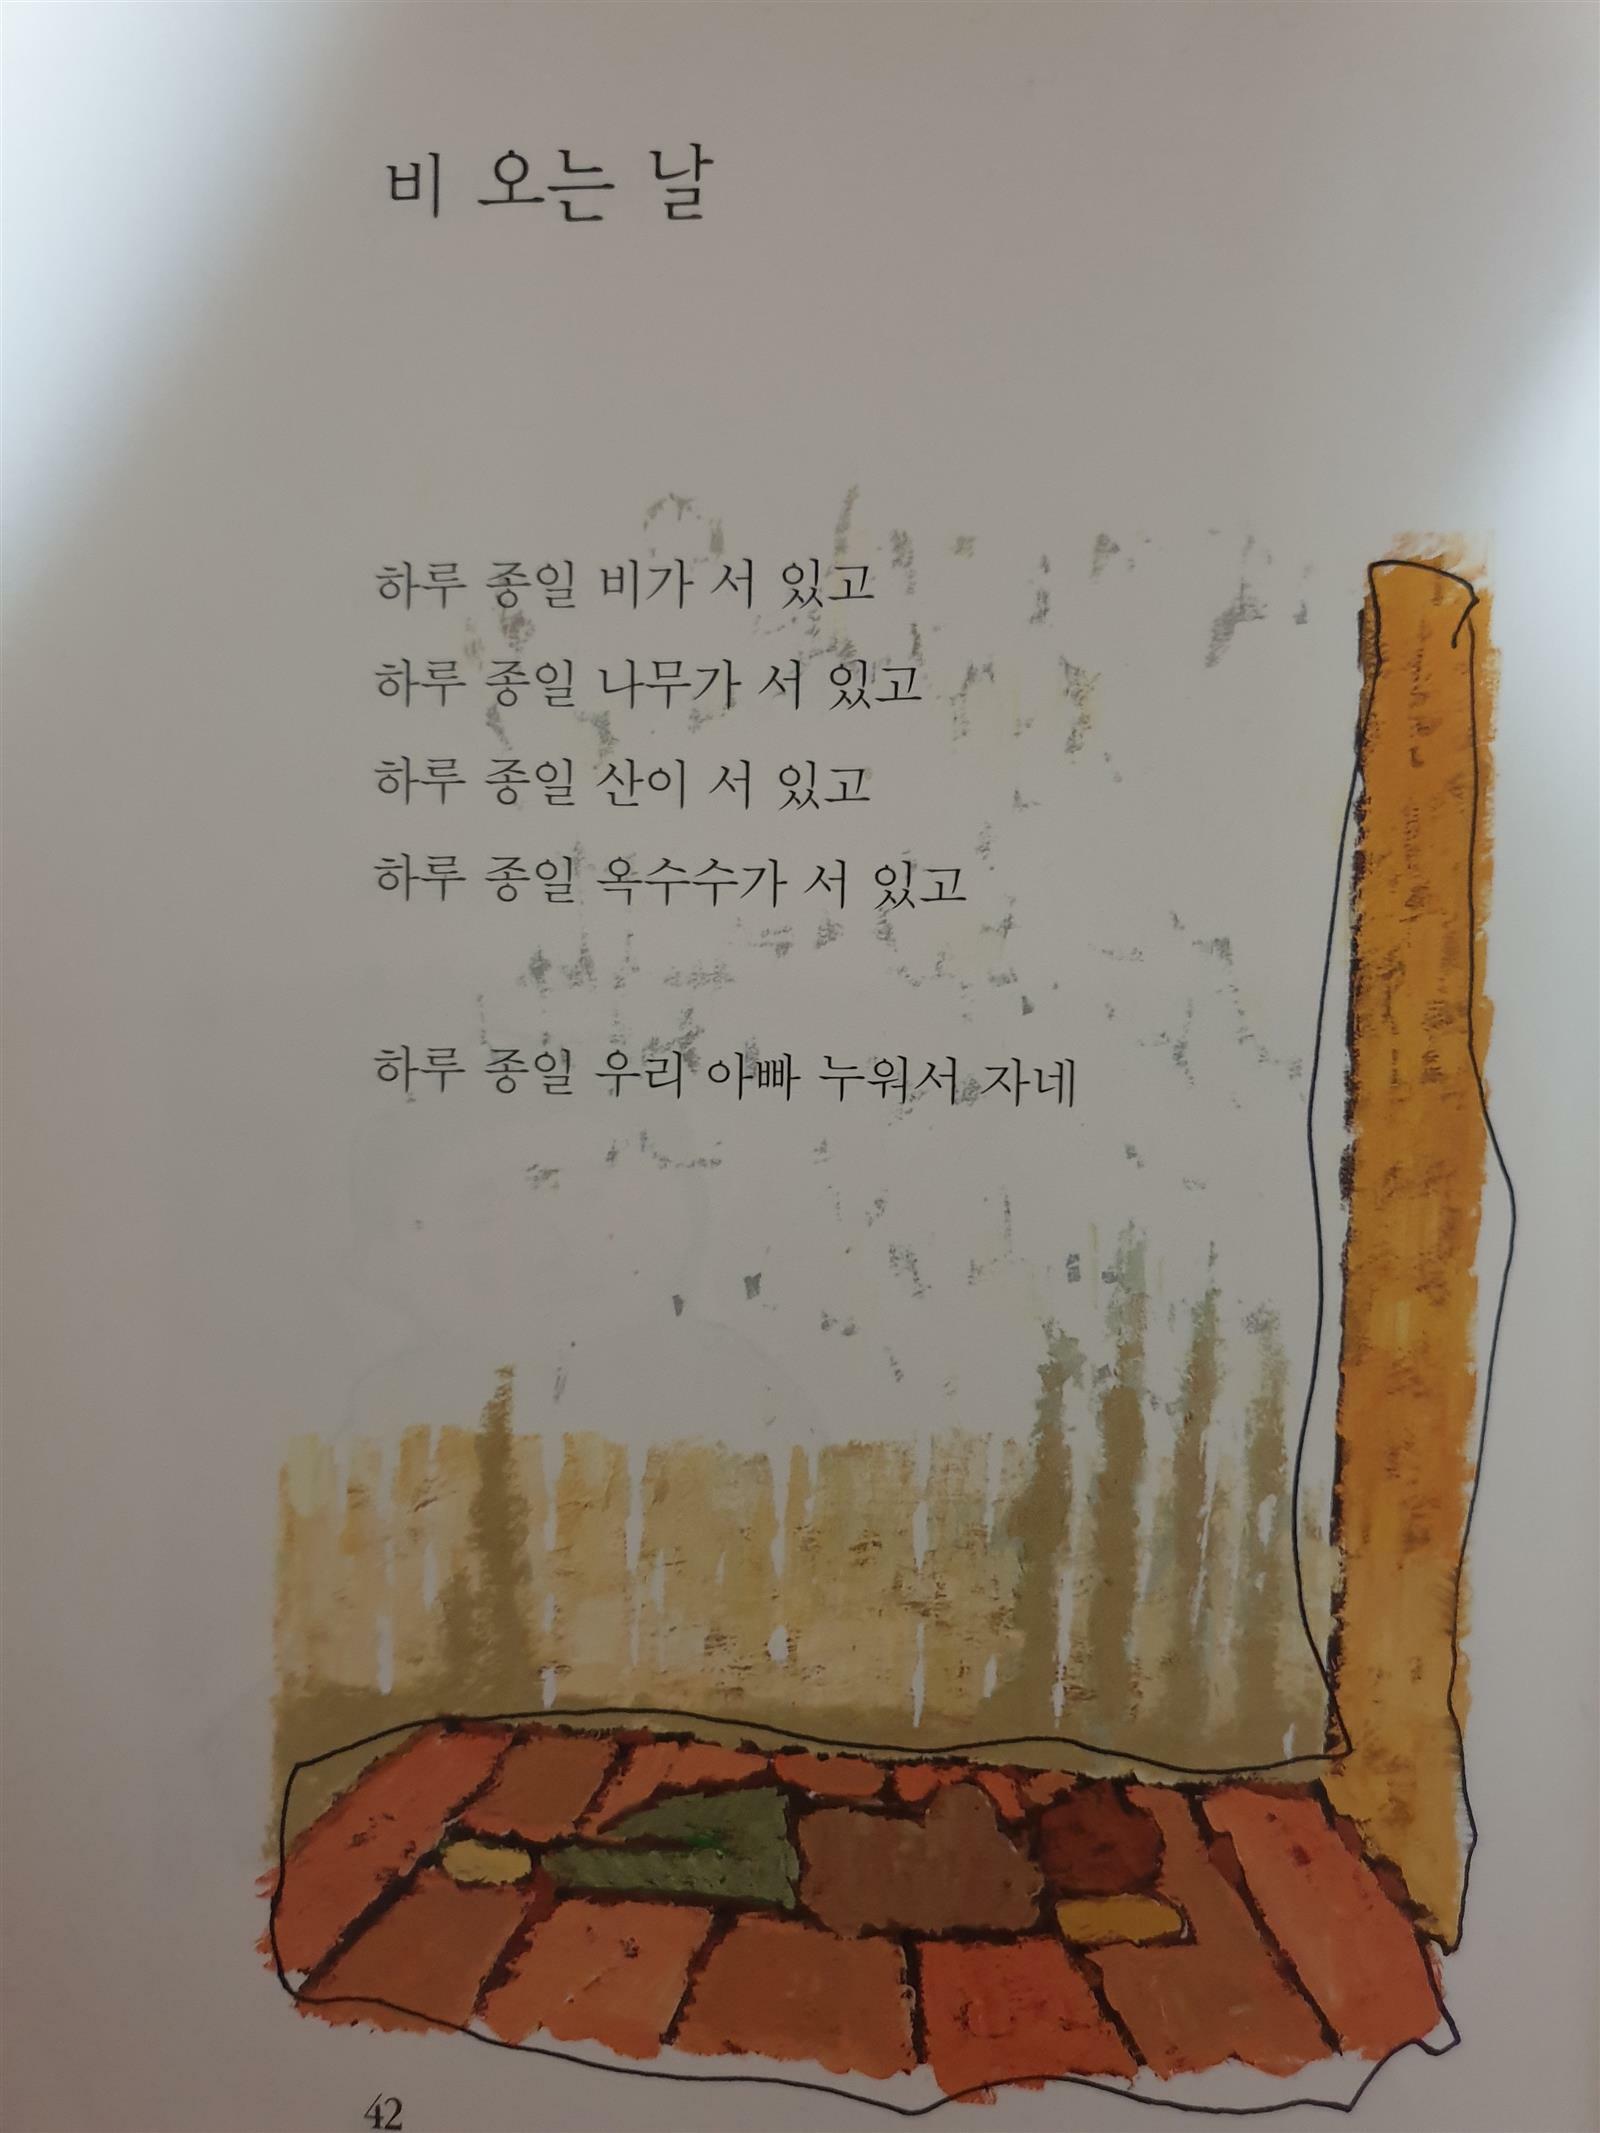 비 오는 날
하루 종일 비가 서 있고
하루 종일 나무가 서 있고
하루 종일 산이 서 있고
하루 종일 옥수수가 서 있고
하루 종일 우리 아빠 누워서 자네
42